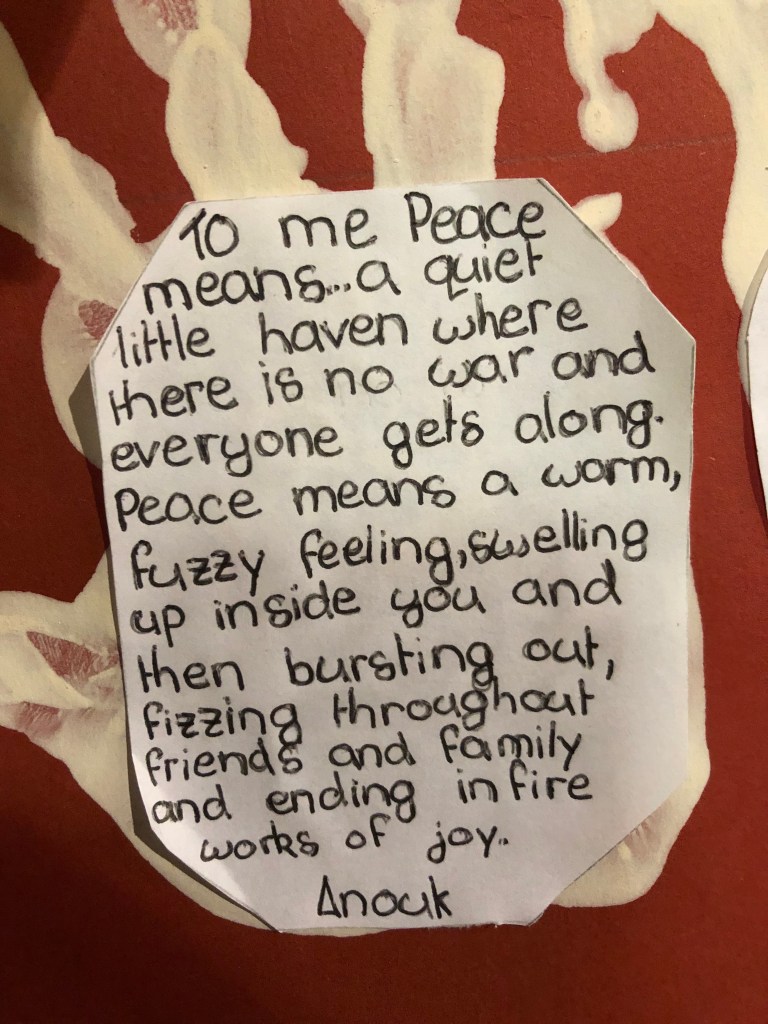 To me Peace
means...a quiet
little haven where
there is no war and
everyone gets along.
Peace means a warm,
fuzzy feeling,swelling
up inside you and
then bursting out,
fizzing throughout
friends and family
and ending in fire
works of joy.
Anouk